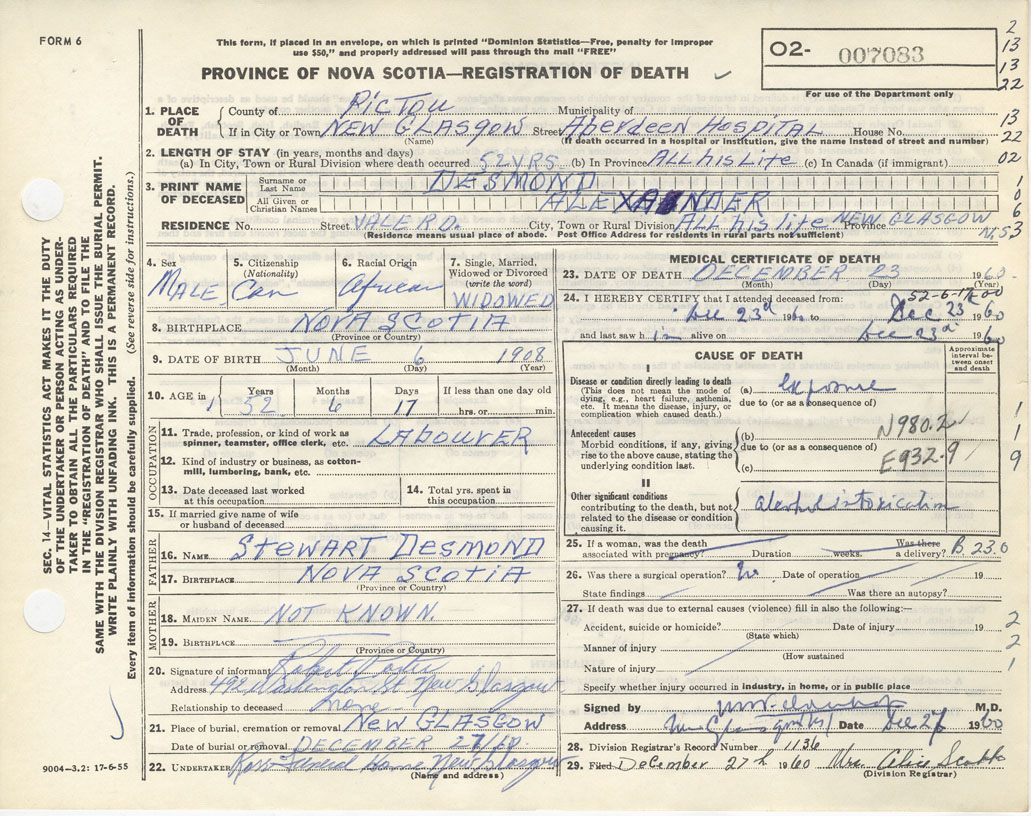 FORM 6
This form, if placed in an envelope, on which is printed "Dominion Statistics—Free, penalty for improper
use $50," and properly addressed will pass through the mail "FREE"
PROVINCE OF NOVA SCOTIA—REGISTRATION OF DEATH
02- 007083
For use of the Department only
2
13
13
22
13
22
02
1
0
6
3
1. PLACE OF DEATH
County of PICTOU Municipality of
If in City or Town NEW GLASGOW Street Aberdeen Hospital House No.
(Name) (If death occurred in a hospital or institution, give the name instead of street and number)
2. LENGTH OF STAY (in years, months and days)
(a) In City, Town or Rural Division where death occurred 52 YRS (b) In Province All his Life (c) In Canada (if immigrant)
3. PRINT NAME OF DECEASED
Surname or Last Name DESMOND
All Given or Christian Names ALEXANDER
RESIDENCE No. Street VALE RD. City, Town or Rural Division All his life NEW GLASGOW Province N.S
(Residence means usual place of abode. Post Office Address for residents in rural parts not sufficient)
4. Sex
MALE
5. Citizenship
(Nationality)
Can
6. Racial Origin
African
7. Single, Married, Widowed or Divorced
(write the word)
WIDOWED
8. BIRTHPLACE NOVA SCOTIA
(Province or Country)
9. DATE OF BIRTH JUNE 6 1908
(Month) (Day) (Year)
10. AGE in Years 52 Months 6 Days 17 If less than one day old
hrs. or min.
OCCUPATION
11. Trade, profession, or kind of work as
spinner, teamster, office clerk, etc. LABOURER
12. Kind of industry or business, as cotton-
mill, lumbering, bank, etc.
13. Date deceased last worked
at this occupation
14. Total yrs. spent in
this occupation
15. If married give name of wife
or husband of deceased
FATHER
16. NAME STEWART DESMOND
17. BIRTHPLACE NOVA SCOTIA
(Province or Country)
MOTHER
18. MAIDEN NAME NOT KNOWN.
19. BIRTHPLACE
(Province or Country)
20. Signature of informant Robert
Address 492 Washington St New Glasgow
Relationship to deceased none
21. Place of burial, cremation or removal NEW GLASGOW
Date of burial or removal DECEMBER 27/60
22. UNDERTAKER Ross Funeral Home New Glasgow
(Name and address)
MEDICAL CERTIFICATE OF DEATH
23. DATE OF DEATH DECEMBER 23 1960
(Month) (Day) (Year)
52-6-17-00
24. I HEREBY CERTIFY that I attended deceased from:
Dec 23d 1960 to Dec 23 1960
and last saw him alive on Dec 23d 1960
CAUSE OF DEATH
Approximate interval between onset and death
I
Disease or condition directly leading to death
(This does not mean the mode of
dying, e.g., heart failure, asthenia,
etc. It means the disease, injury, or
complication which caused death.)
(a) exposure
due to (or as a consequence of)
Antecedent causes
Morbid conditions, if any, giving
rise to the above cause, stating the
underlying condition last.
(b) N980.2
due to (or as a consequence of)
(c) E932.9
1
1
9
II
Other significant conditions
contributing to the death, but not
related to the disease or condition
causing it.
alcohol intoxication
25. If a woman, was the death Was there B 23.0
associated with pregnancy? Duration weeks. a delivery?
26. Was there a surgical operation? No Date of operation 19
State findings Was there an autopsy?
27. If death was due to external causes (violence) fill in also the following:—
Accident, suicide or homicide? Date of injury 19
(State which)
2
Manner of injury
(How sustained
2
Nature of injury
1
Specify whether injury occurred in industry, in home, or in public place
Signed by M.D.
Address New Glasgow NS Date Dec 27 1960
28. Division Registrar's Record Number 1136
29. Filed December 27th 1960 Mrs. Alice
(Division Registrar)
SEC. 14—VITAL STATISTICS ACT MAKES IT THE DUTY
OF THE UNDERTAKER OR PERSON ACTING AS UNDER-
TAKER TO OBTAIN ALL THE PARTICULARS REQUIRED
IN THE "REGISTRATION OF DEATH" AND TO FILE THE
SAME WITH THE DIVISION REGISTRAR WHO SHALL ISSUE THE BURIAL PERMIT.
WRITE PLAINLY WITH UNFADING INK. THIS IS A PERMANENT RECORD.
Every item of information should be carefully supplied. (See reverse side for instructions.)
9004—3.2: 17-6-55